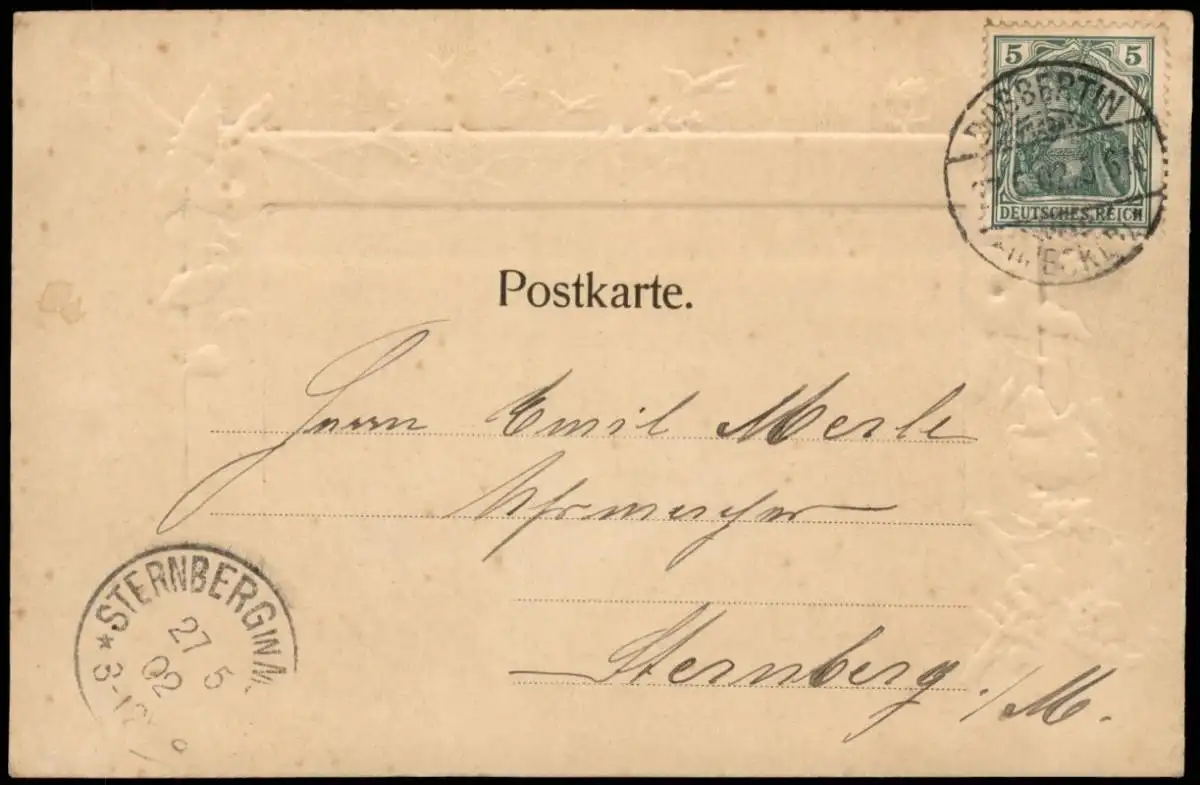 5 5
DEUTSCHES REICH
DOBBERTIN
02
(MECKLB)
Postkarte.
Herrn Emil Merle
Uhrmacher
Sternberg i/M.
* STERNBERG IN M.
27
5
02
8-12